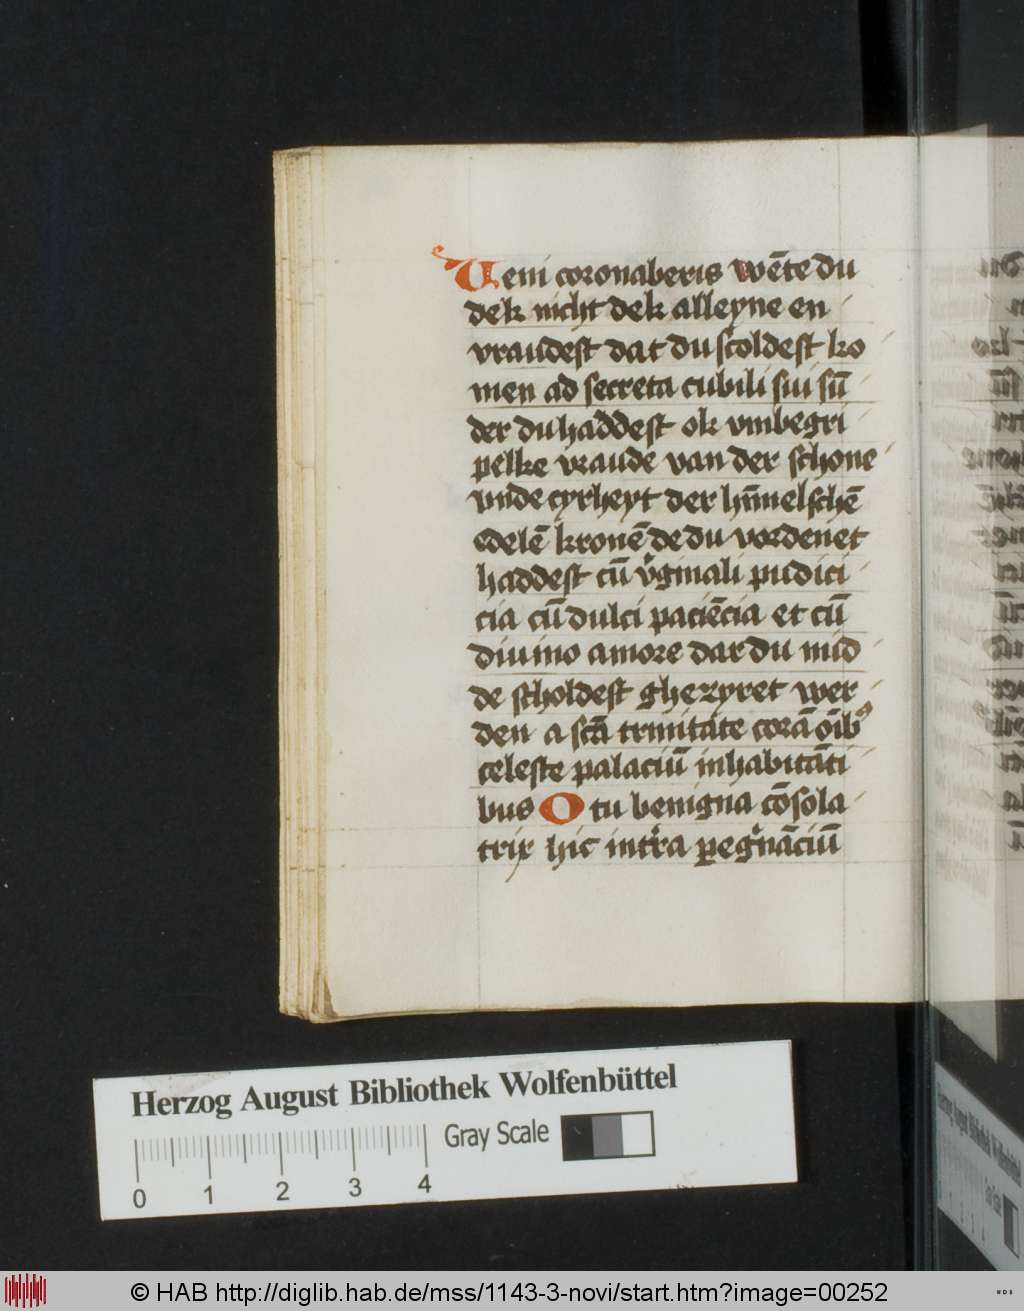 Veni coronaberis wēte du
dek nicht dek alleyne en
vraudest dat du scoldest ko
men ad secreta cubili sui sū
der du haddest ok vmbegri
pelke vraude van der schone
vnde cyrheyt der hīmelschē
edelē kronē de du vordenet
haddest cū v'ginali pudici
cia cū dulci paciēcia et cū
diuino amore dar du mid
de scholdest ghezyret wer
den a scā trinitate corā oīb9
celeste palaciū inhabitāti
bus O tu benigna cōsola
trix hic int'ra peg'nāciū
Herzog August Bibliothek Wolfenbüttel
Gray Scale
0 1 2 3 4
© HAB http://diglib.hab.de/mss/1143-3-novi/start.htm?image=00252